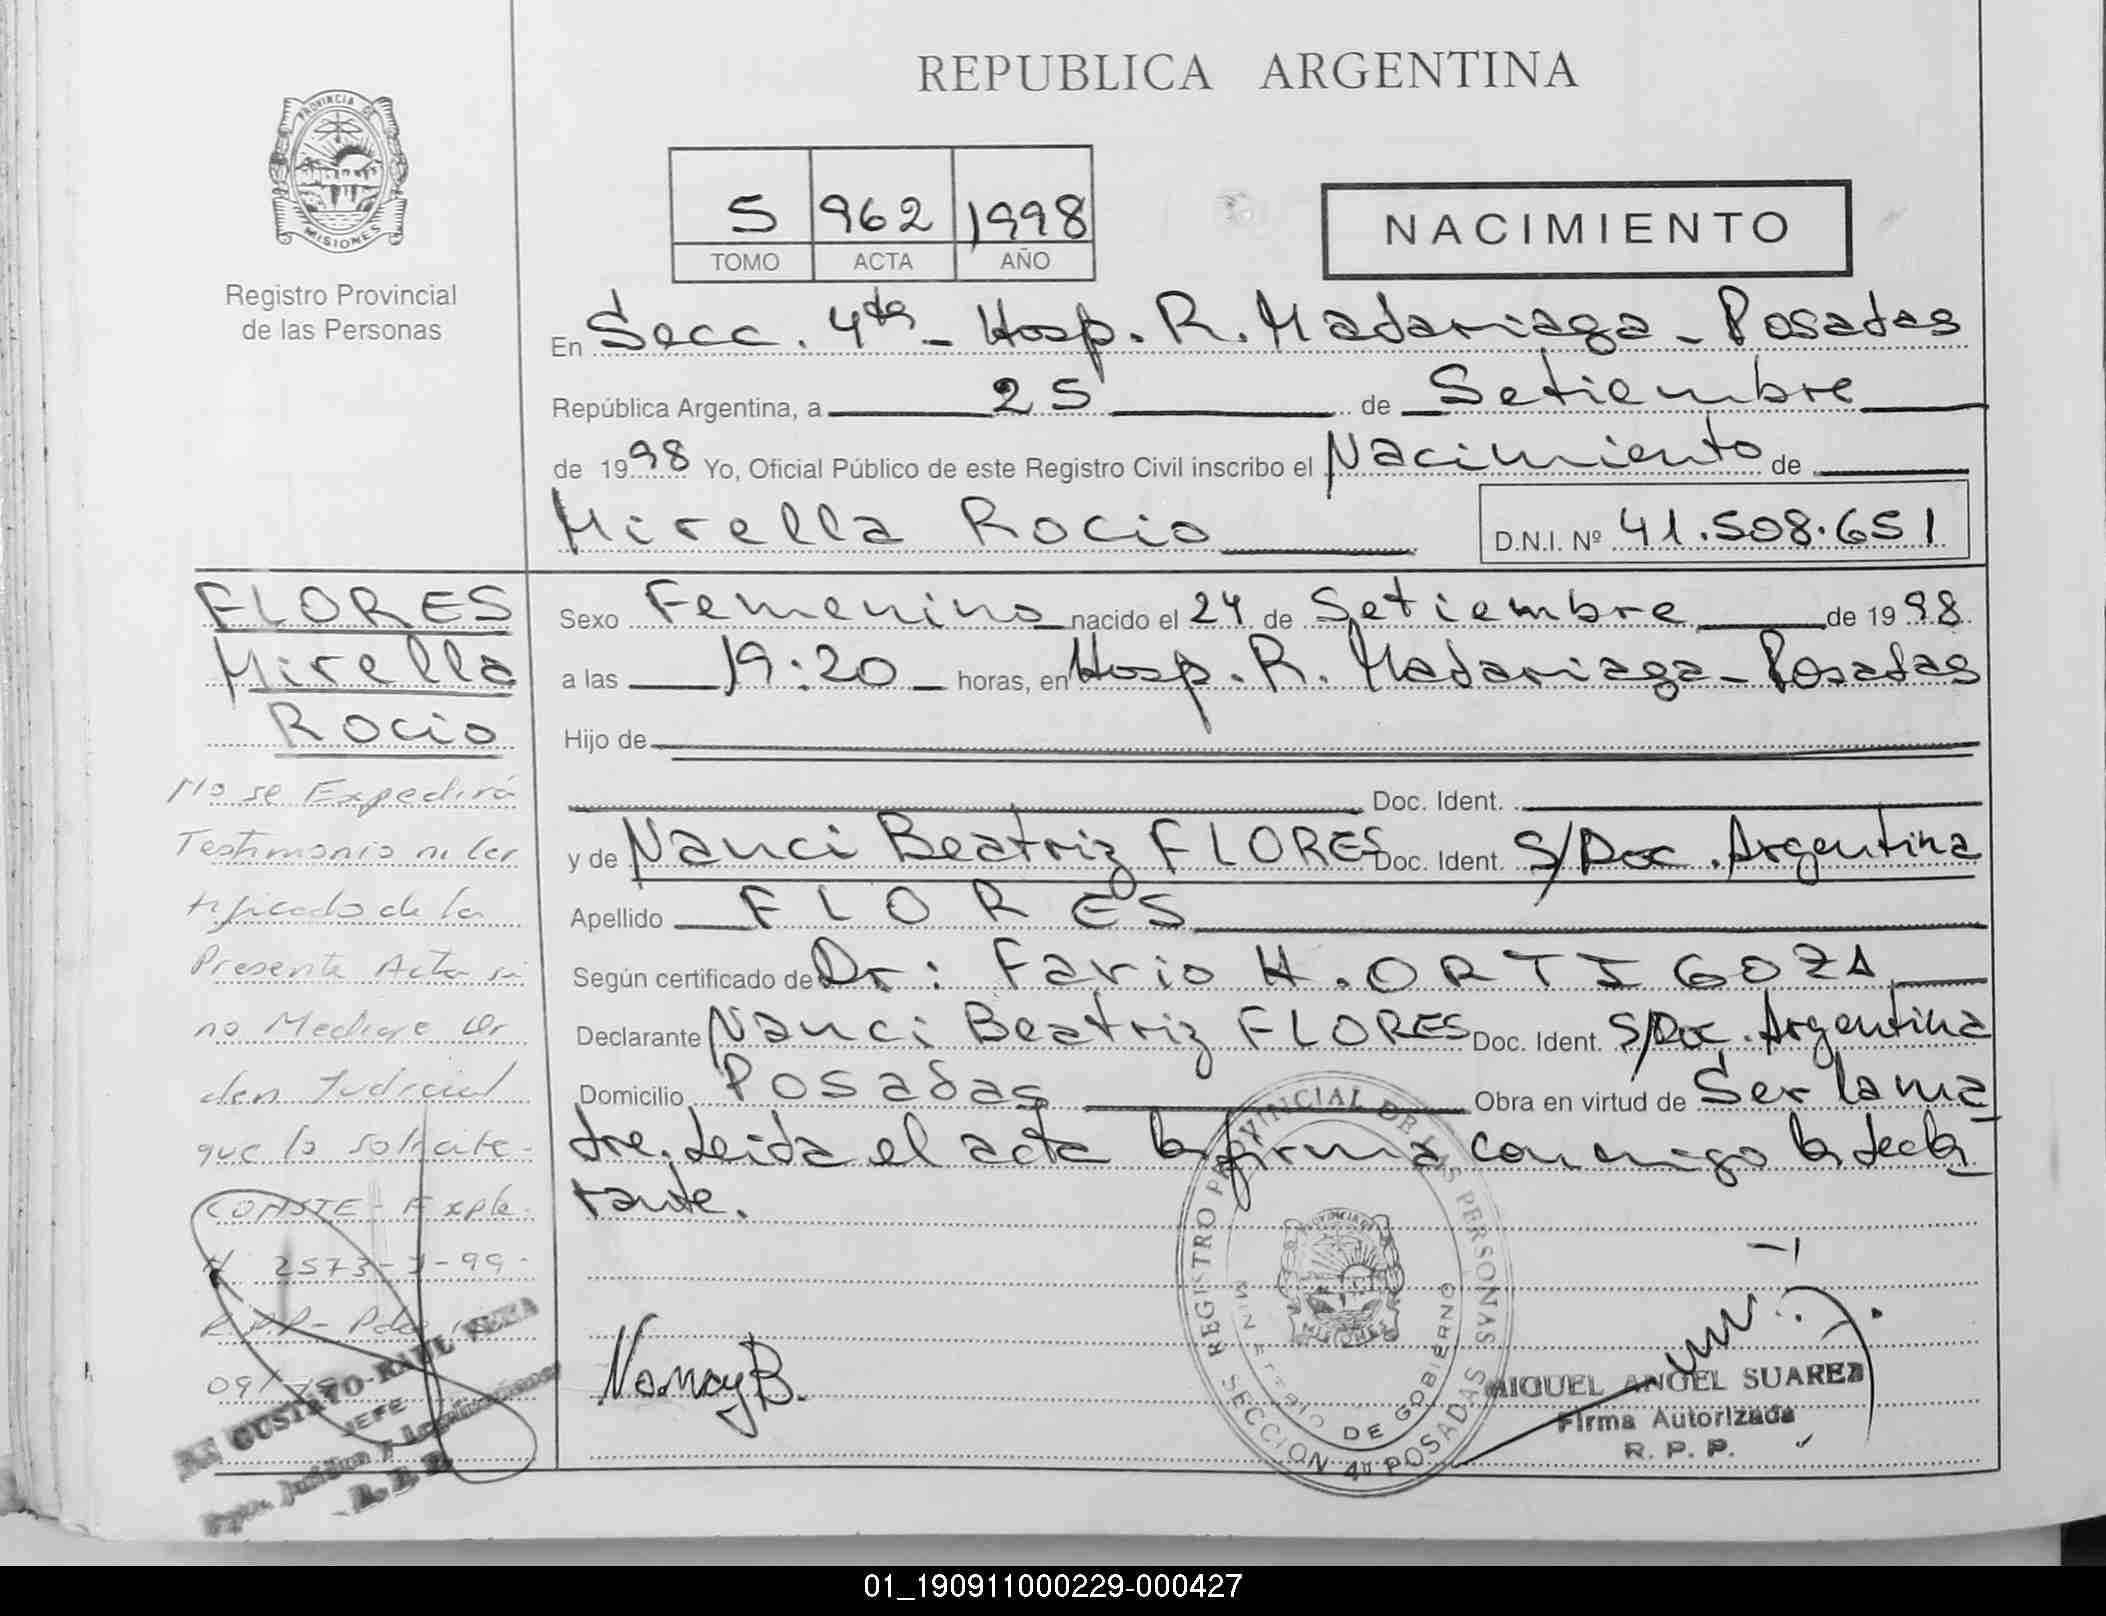 REPUBLICA ARGENTINA
PROVINCIA DE
MISIONES
Registro Provincial
de las Personas
5 962 1998
TOMO ACTA AÑO
NACIMIENTO
En Secc. 4ta - Hosp. R. Madariaga - Posadas
República Argentina, a 25 de Setiembre
de 1998 Yo, Oficial Público de este Registro Civil inscribo el Nacimiento de
Mirella Rocio D.N.I. Nº 41.508.651
FLORES
Mirella
Rocio
Sexo Femenino nacido el 24 de Setiembre de 1998
a las 19:20 horas, en Hosp. R. Madariaga - Posadas
Hijo de
Doc. Ident.
y de Nanci Beatriz FLORES Doc. Ident. S/Doc. Argentina
Apellido FLORES
Según certificado de Dr: Fario H. ORTIGOZA
Declarante Nanci Beatriz FLORES Doc. Ident. S/Doc. Argentina
Domicilio Posadas Obra en virtud de Ser la ma
dre, Leida el acta la firma conmigo la decla
rante.
No se Expedirá
Testimonio ni Cer
tificado de la
Presente Acta si
no Mediare Or
den Judicial
que lo solicite-
CONSTE - Expte.
Nº 2573-J-99-
R.P.P-
09/
GUSTAVO RAUL
JEFE
Dpto. Jurídico y
R.P.P.
Nancy B.
REGISTRO PROVINCIAL DE LAS PERSONAS
MINISTERIO DE GOBIERNO
SECCION 4ª POSADAS
MIGUEL ANGEL SUAREZ
Firma Autorizada
R. P. P.
01_190911000229-000427